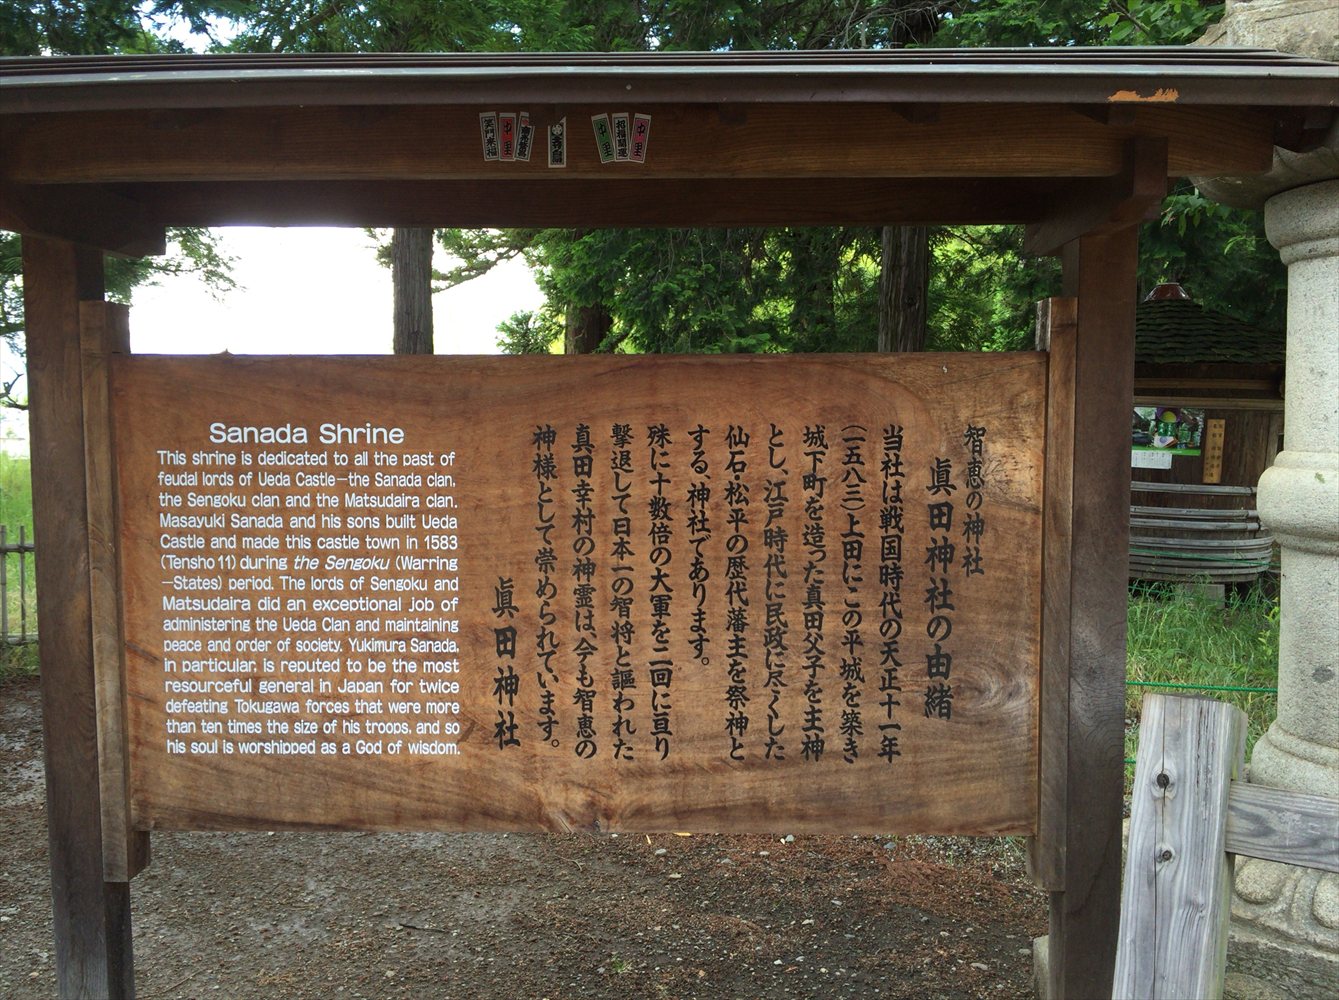 笑門来福
中里
招福開運
中里
Sanada Shrine
This shrine is dedicated to all the past of
feudal lords of Ueda Castle—the Sanada clan,
the Sengoku clan and the Matsudaira clan.
Masayuki Sanada and his sons built Ueda
Castle and made this castle town in 1583
(Tensho 11) during the Sengoku (Warring
—States) period. The lords of Sengoku and
Matsudaira did an exceptional job of
administering the Ueda Clan and maintaining
peace and order of society. Yukimura Sanada,
in particular, is reputed to be the most
resourceful general in Japan for twice
defeating Tokugawa forces that were more
than ten times the size of his troops, and so
his soul is worshipped as a God of wisdom.
智恵の神社
眞田神社の由緒
当社は戦国時代の天正十一年
(一五八三)上田にこの平城を築き
城下町を造った真田父子を主神
とし、江戸時代に民政に尽くした
仙石・松平の歴代藩主を祭神と
する、神社であります。
殊に十数倍の大軍を二回に亘り
撃退して日本一の智将と謳われた
真田幸村の神霊は、今も智恵の
神様として崇められています。
眞田神社